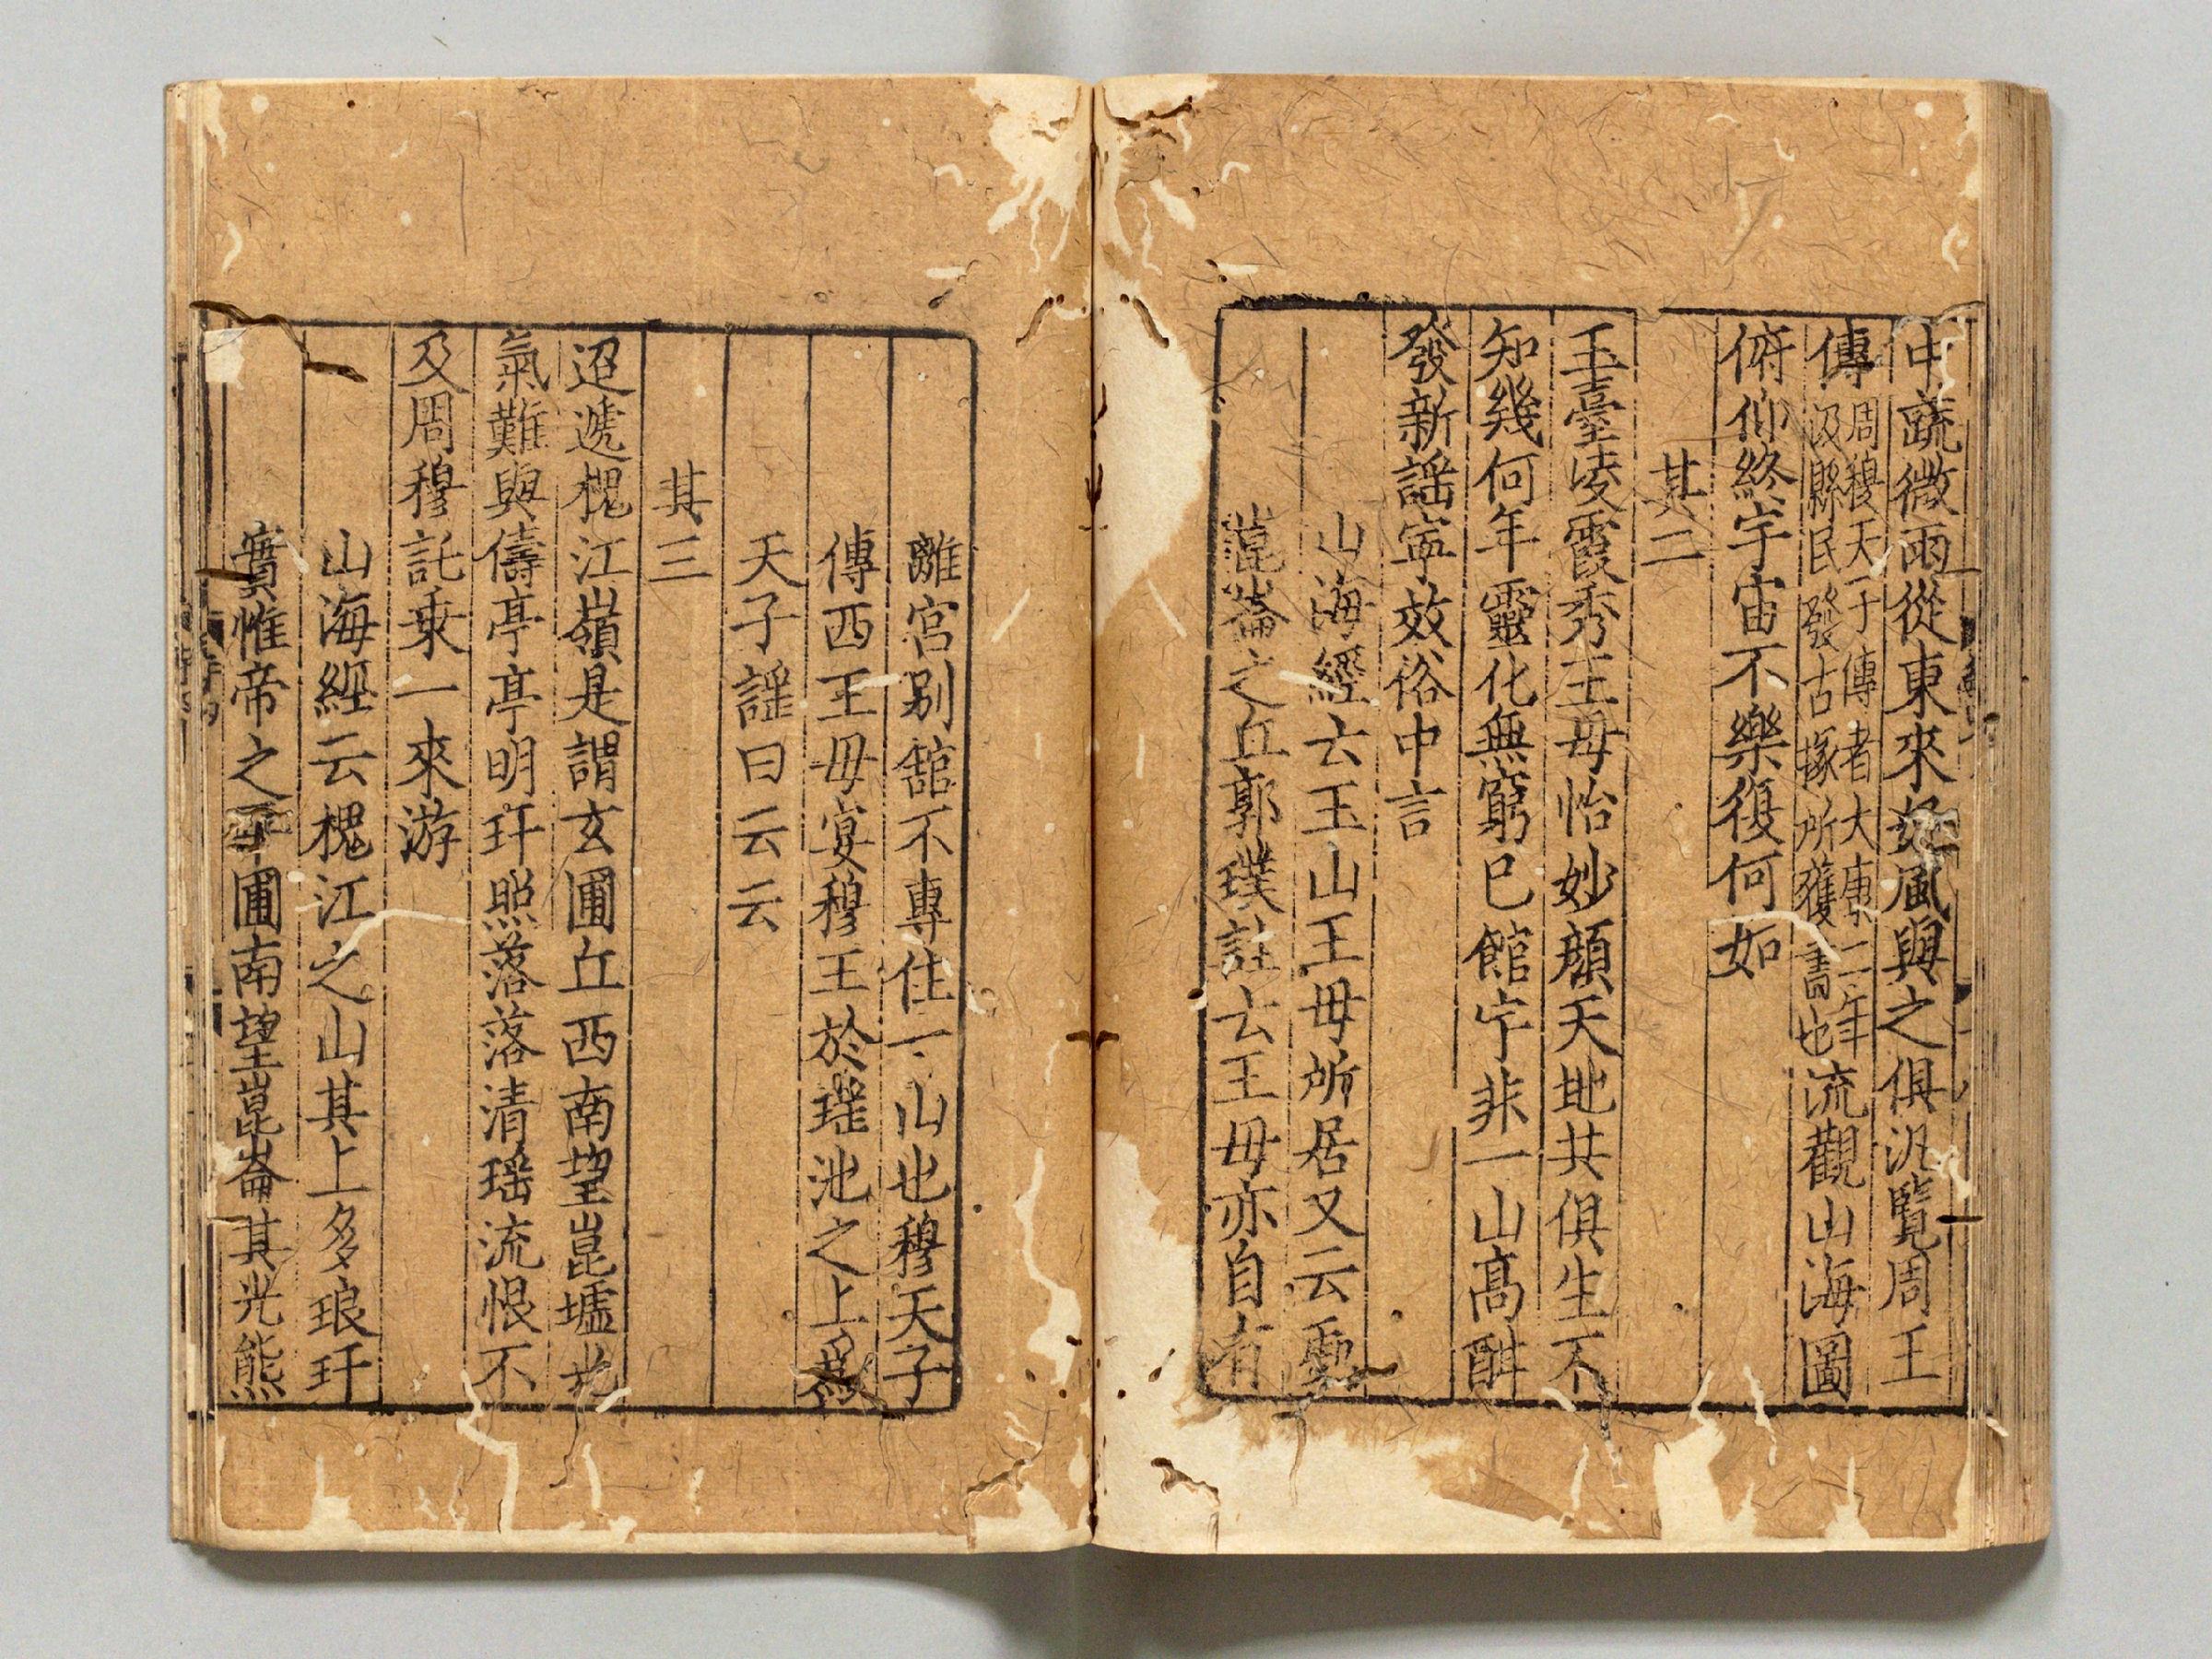 中蔬微雨從東來好風與之俱汎覽周王
傳周穆天子傳者大康二年汲縣民發古塚所獲書也流觀山海圖
俯仰終宇宙不樂復何如
其二
玉臺凌霞秀王母怡妙顏天地共俱生不
知幾何年靈化無窮已館宇非一山高酣
發新謡寧效俗中言
山海經云玉山王母所居又云
崑崙之丘郭璞註云王母亦自有
離宮别舘不專住一山也穆天子
傳西王母宴穆王於瑤池之上為
天子謡曰云云
其三
迢遞槐江嶺是謂玄圃丘西南望崑墟光
氣難與儔亭亭明玕照落落清瑶流恨不
及周穆託乗一來游
山海經云槐江之山其上多琅玕
實惟帝之圃南望崑崙其光熊